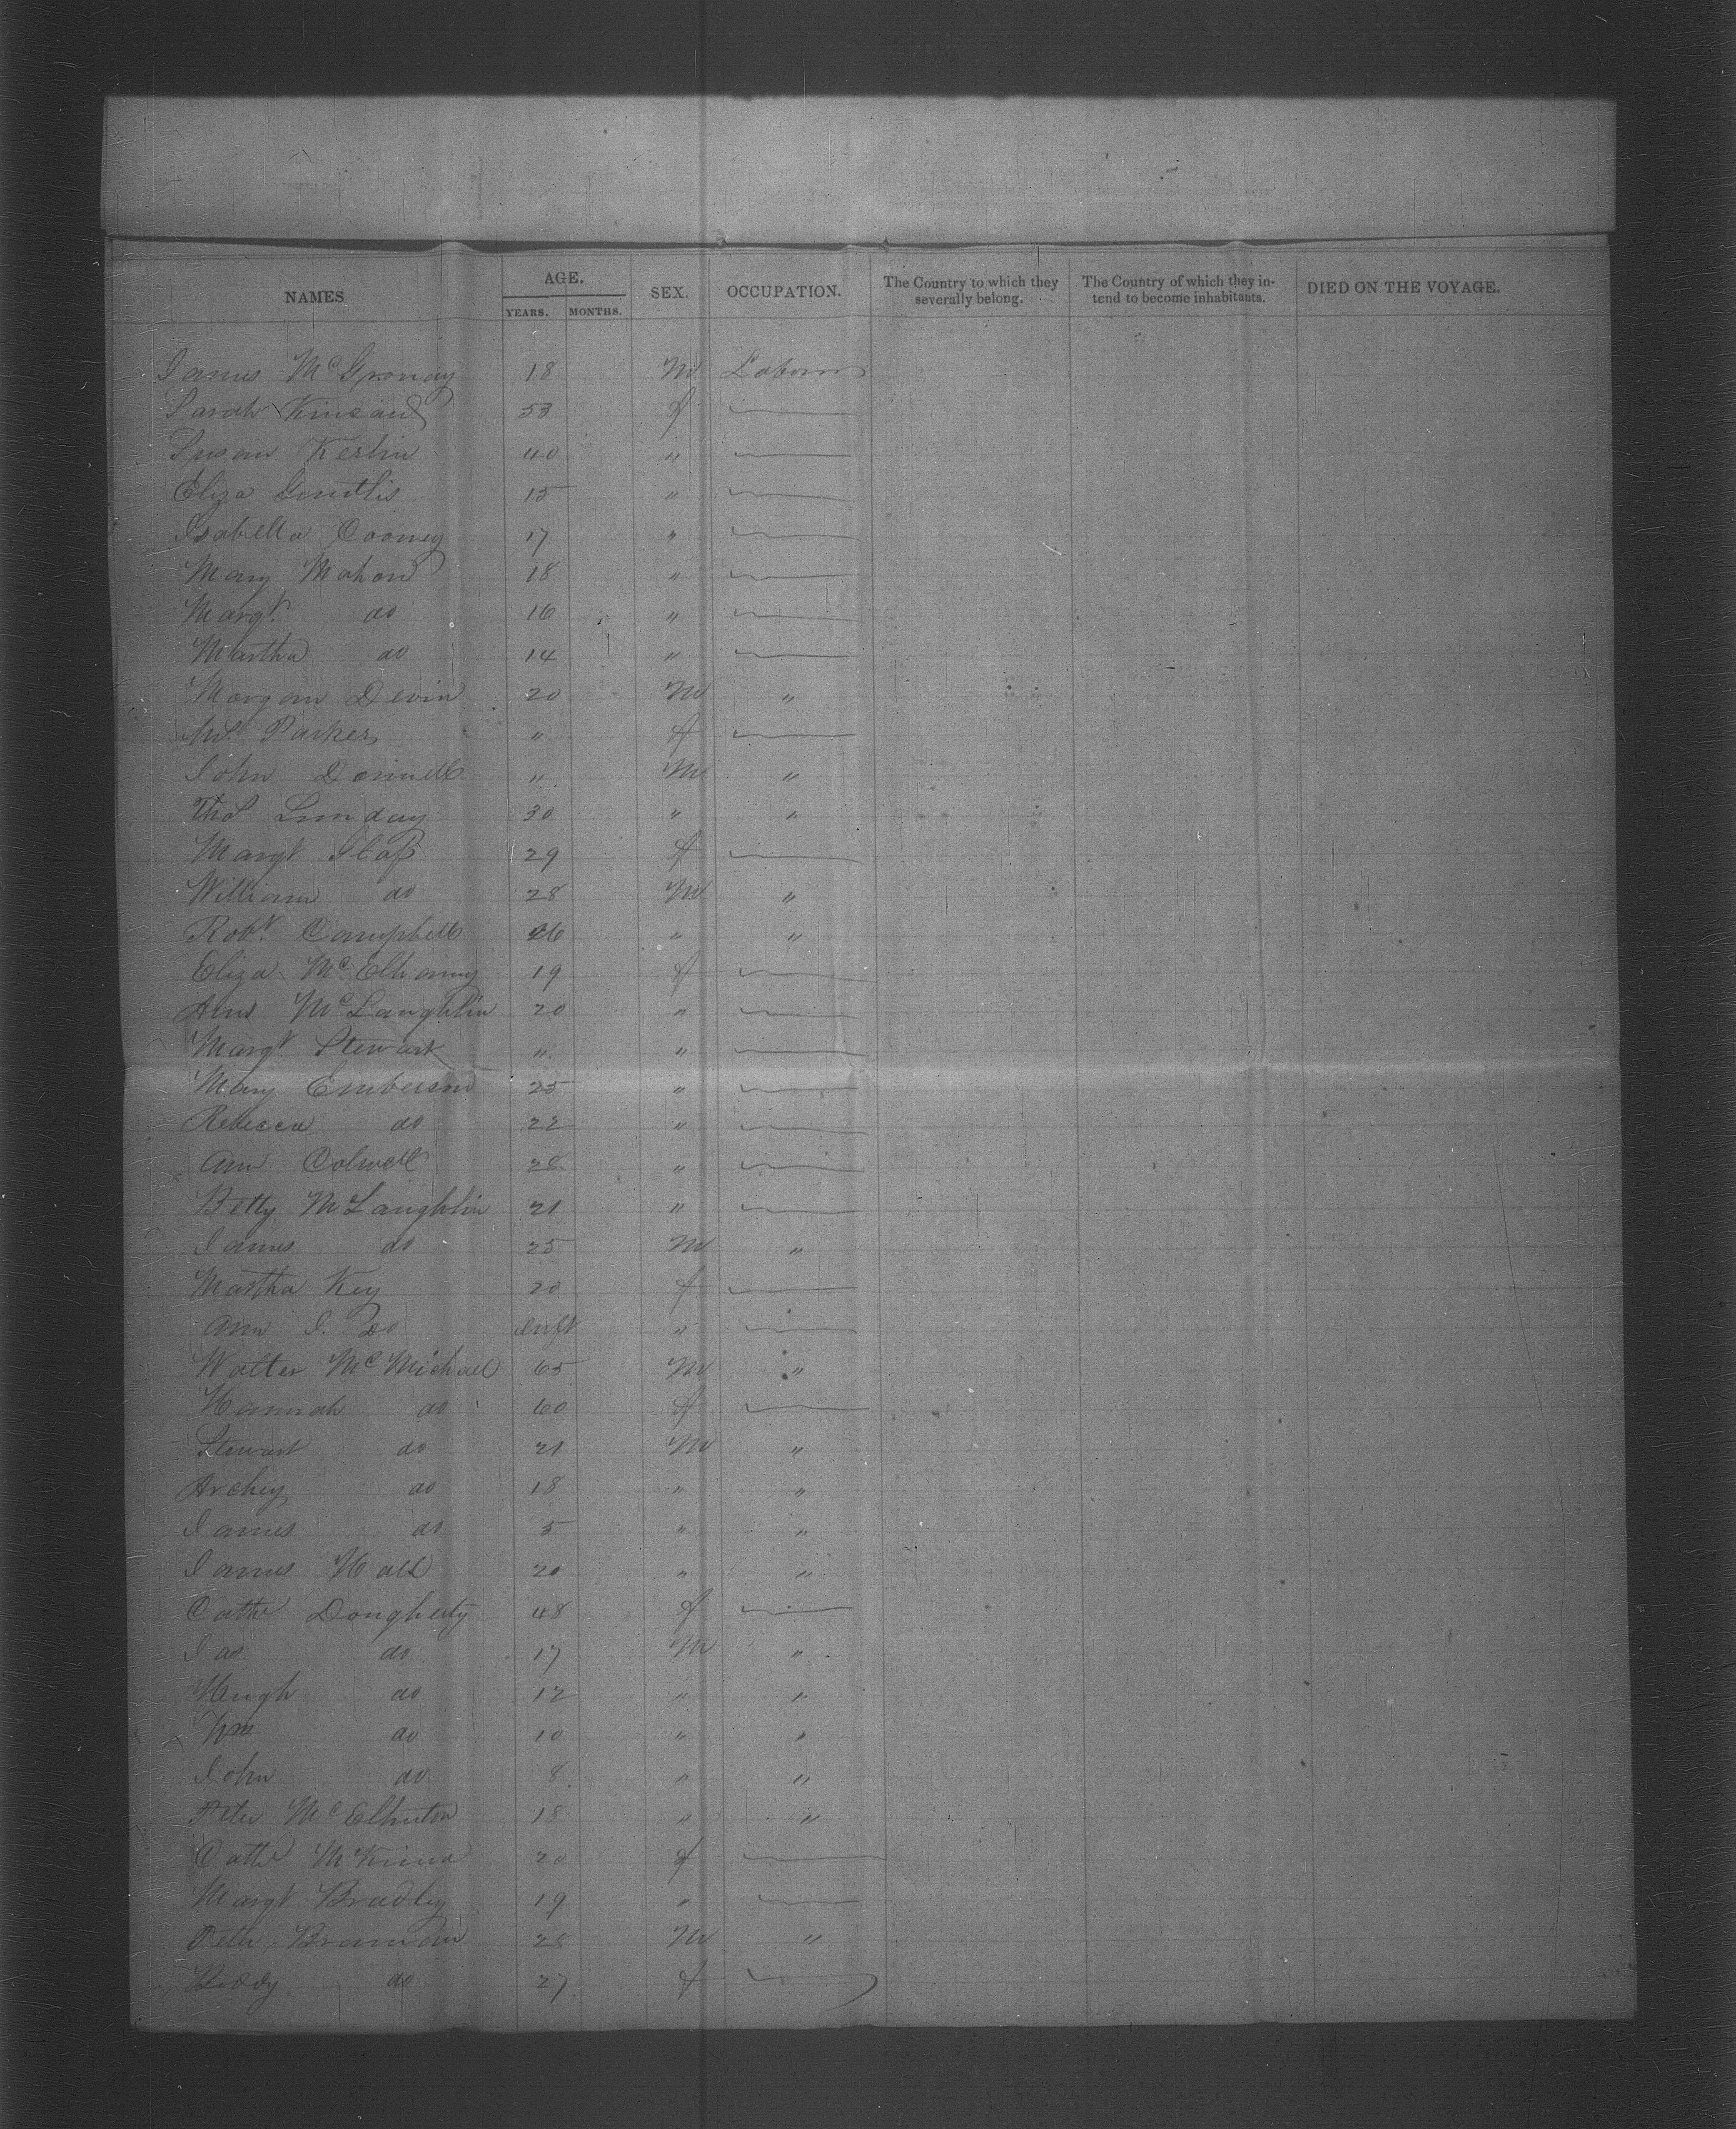 NAMES AGE. YEARS. MONTHS. SEX. OCCUPATION. The Country to which they severally belong. The Country of which they intend to become inhabitants. DIED ON THE VOYAGE.
James 18 M Laborer
Sarah Kincaid 53 f
Susan Kerlin 40 "
Eliza 15 "
Isabella Cooney 17 "
Mary Mahon 18 "
Margt do 16 "
Martha do 14 "
Morgan Devin 20 M "
Parker " f
John Donnell " M "
Thos 30 " "
Margt 29 f
William do 28 M "
Robt. Campbell " "
Eliza McElhanny 19 f
Ann McLaughlin 20 "
Margt Stewart " "
Mary Emberson 25 "
Rebecca do 22 "
Ann Colwell 28 "
Betty McLaughlin 21 "
James do 25 M "
Martha Key 20 f
Ann J. Do Inft "
Walter McMichael 65 M "
Hannah do 60 f
Stewart do 21 M "
Archey do 18 " "
James do 5 " "
James Hall 20 " "
Cathe Dougherty 48 f
Jas do 17 M "
Hugh do 12 " "
Wm do 10 " "
John do 8 " "
Peter McElhinton 18 " "
Cathe 20 f
Margt Bradley 19 "
Peter Brannan 28 M "
Biddy do 27 f